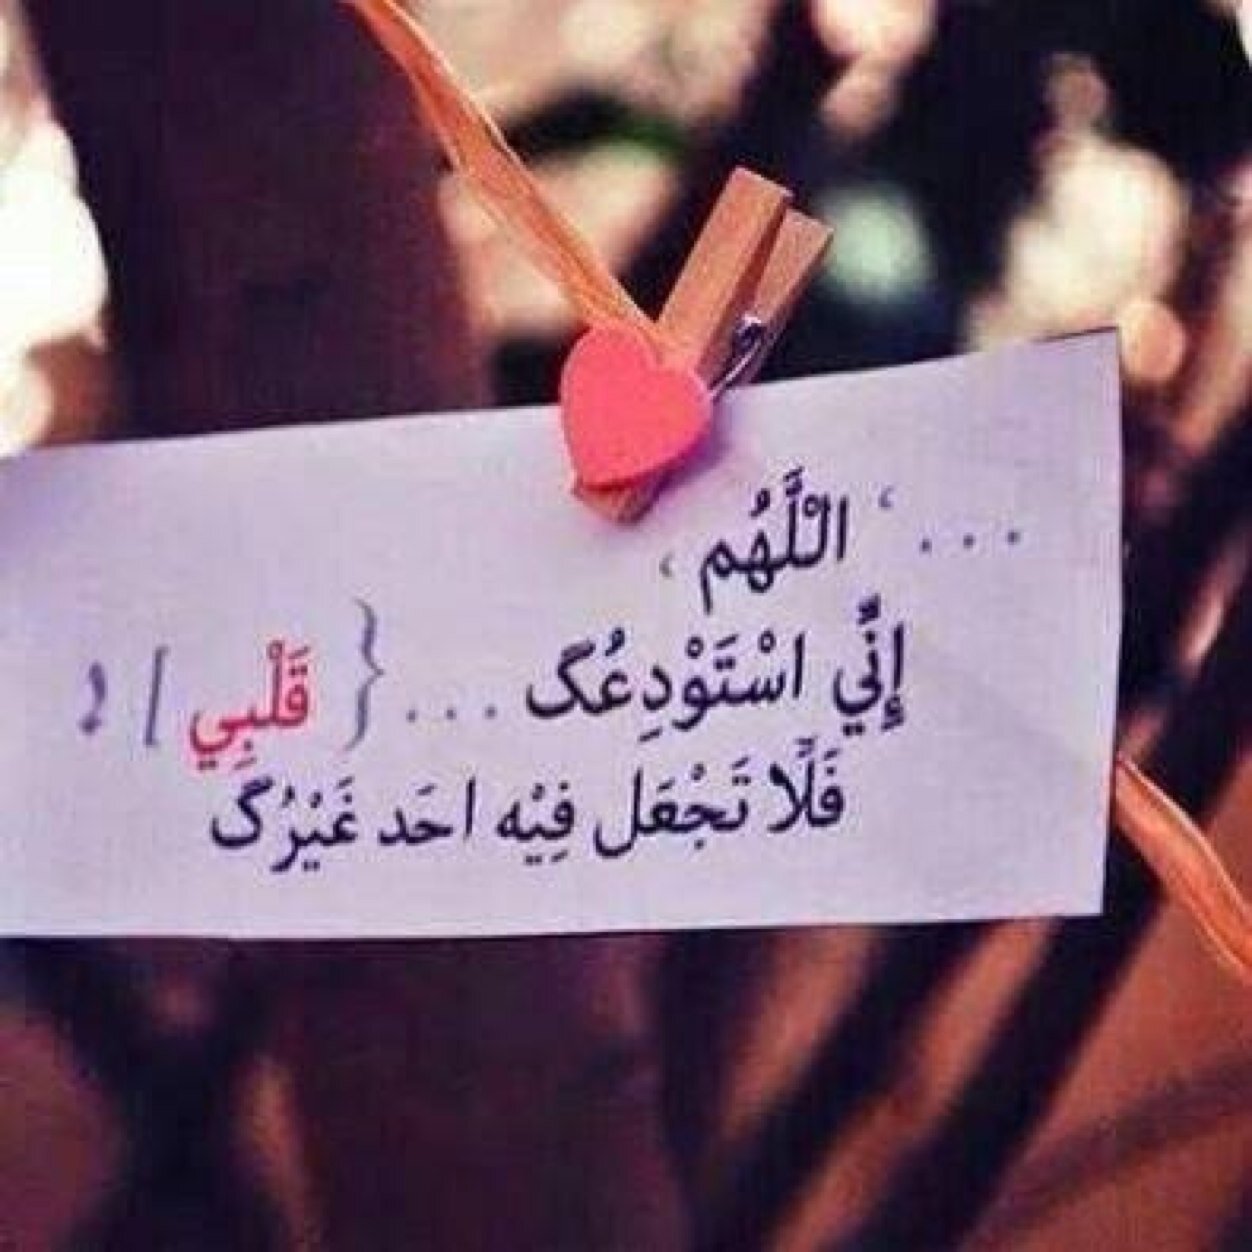 ... ‘ اللَّهُم ،
إِنِّي اسْتَوْدِعُگ ... { قَلْبِي / !
فَلَّا تَجْعَل فِيْه احَد غَيْرُگ